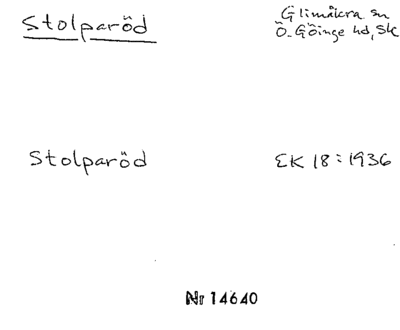 Stolparöd
Glimåkra sn
Ö. Göinge hd, Sk
Stolparöd
EK 18:1936
Nr 14640